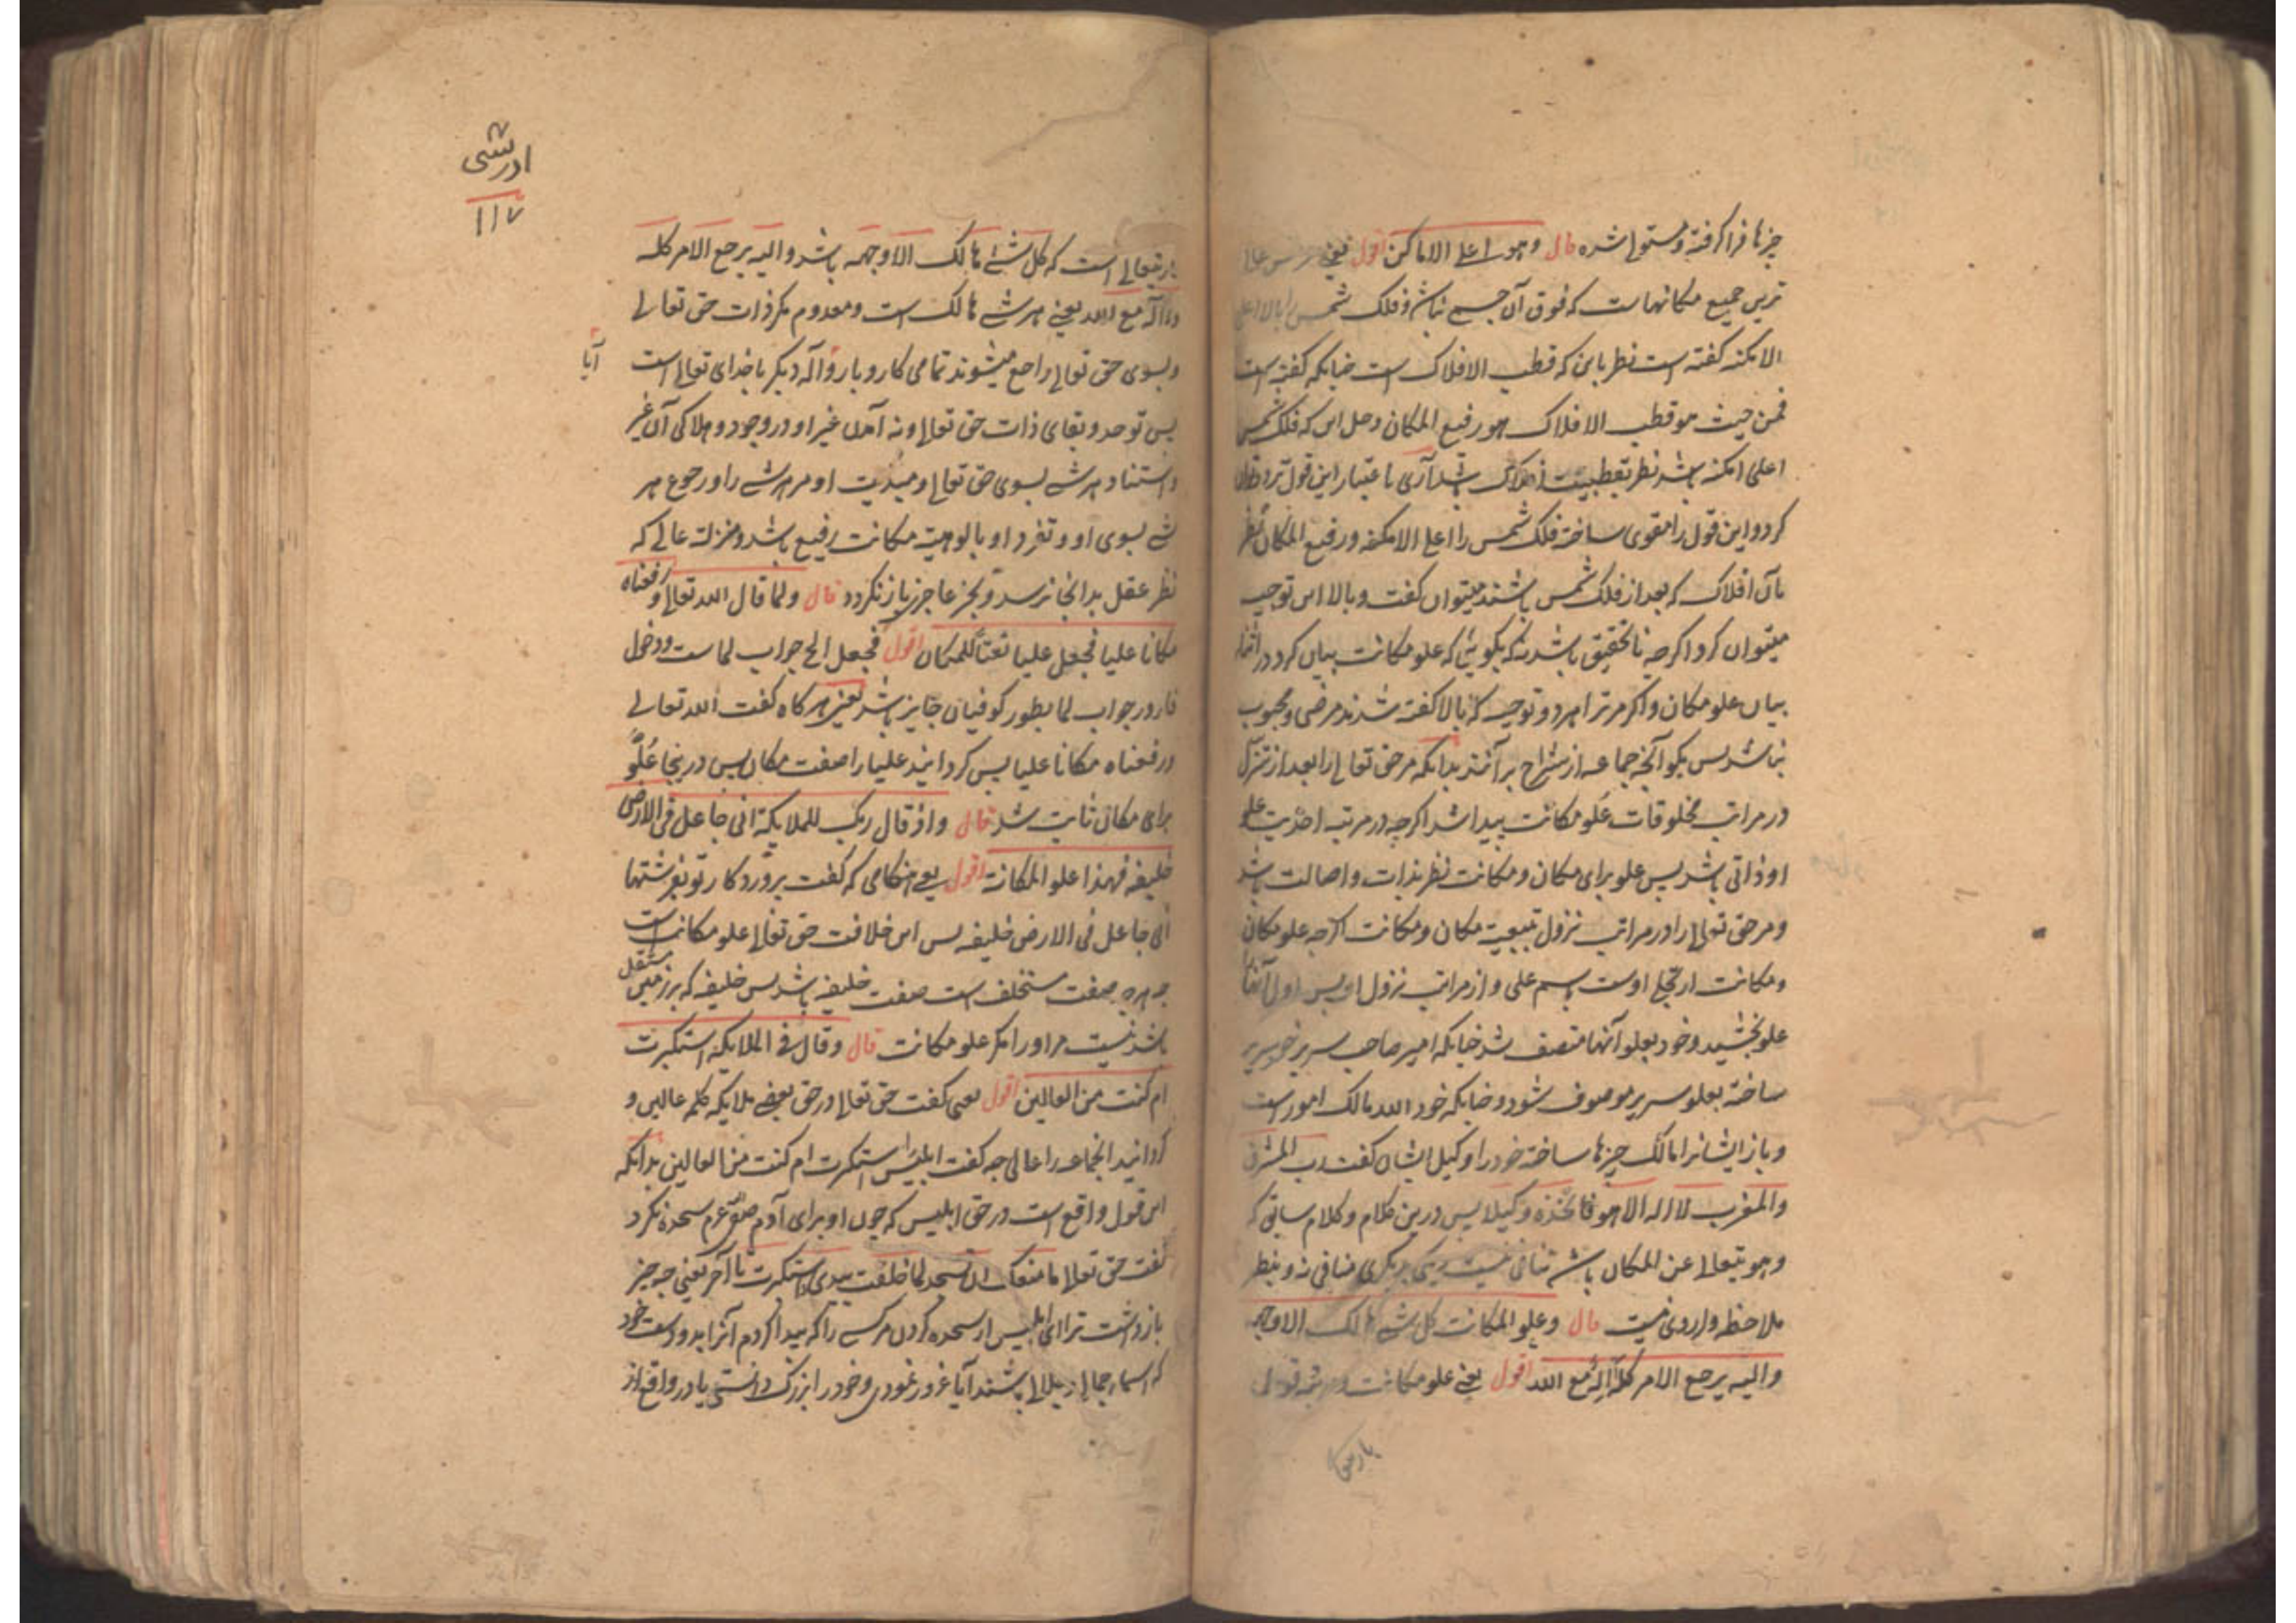 چیزها فرا گرفته و مستولی شده قال وهو اعلی الاماکن اقول یعنی عرش
ترین جمیع مکانهاست که فوق آن جسمی نباشد و فلک شمس را بالا اعلی
الامکنه گفته است نظر باین که قطب الافلاک است چنانکه گفته است
فمن حیث هو قطب الافلاک هو رفیع المکان و حل این که فلک شمس
اعلی امکنه باشد نظر بقطبیت افلاک باشد آری باعتبار این قول تردد توان
کرد و این قول را مقوی ساخته فلک شمس را اعلی الامکنه و رفیع المکان نظر
بآن افلاک که بعد از فلک شمس باشند میتوان گفت و بالا این توجیه
میتوان کرد اگرچه ناتحقیق باشد نه که بگوئی که علو مکانت بیان کرد در اثنای
بیان علو مکان و اگر مر ترا هر دو توجیه که بالا گفته شدند مرضی و محبوب
نباشد پس بگو آنچه جماعه از شراح برآنند بدانکه مر حق تعالی را بعد از تنزل
در مراتب مخلوقات علو مکانت پیدا شد اگرچه در مرتبه احدیت علو
او ذاتی باشد پس علو برای مکان و مکانت نظر بذات و اصالت باشد
و مر حق تعالی را در مراتب نزول بتبعیت مکان و مکانت اگرچه علو مکان
و مکانت از تجلی اوست باسم علی و از مراتب نزول او پس اول آنها
علو بخشید و خود بعلو آنها متصف شد چنانکه امیر صاحب سریر خود سریر
ساخته بعلو سریر موصوف شود و چنانکه خود الله مالک امور است
و باز ایشانرا مالک چیزها ساخته خود را وکیل ایشان گفت رب المشرق
والمغرب لا اله الا هو فاتخذه وکیلا پس درین کلام و کلام سابق که
وهو یتعالی عن المکان باشد تنافی نیست یکی بدیگری منافی نه و بنظر
ملاحظه وارد نیست قال وعلو المکانت کل شئ هالک الا وجهه
والیه یرجع الامر کله أإله مع الله اقول یعنی علو مکانت
ادریسی
۱۱۷
باریتعالی است که کل شئ هالک الا وجهه باشد والیه یرجع الامر کله
وأإله مع الله یعنی هر شئ هالک است و معدوم مگر ذات حق تعالی
و بسوی حق تعالی راجع میشوند تمامی کار و بار و آله دیگر با خدای تعالی است
آیا
پس توحد و بقای ذات حق تعالی و نه آمدن غیر او در وجود و هلاکی آن غیر
و استناد هر شئ بسوی حق تعالی و مبدئیت او مر هر شئ را و رجوع هر
شئ بسوی او و تفرد او بالوهیت مکانت رفیع باشد و منزلت عالی که
نظر عقل بدانجا نرسد و بجز عاجز باز نگردد قال ولما قال الله تعالی ورفعناه
مکانا علیا فجعل علیا نعتا للمکان اقول فجعل الخ جواب لما ست و دخول
فا در جواب لما بطور کوفیان جایز باشد یعنی هرگاه گفت الله تعالی
ورفعناه مکانا علیا پس گردانید علیا را صفت مکان پس درینجا علو
برای مکان ثابت شد قال واذ قال ربک للملایکة انی جاعل فی الارض
خلیفه فهذا علو المکانة اقول یعنی هنگامی که گفت پروردگار تو بفرشتها
انی جاعل فی الارض خلیفه پس این خلافت حق تعالی علو مکانت است
چه بصفت مستخلف است صفت خلیفه باشد پس خلیفه که بر زمین مستقل
باشد نیست مر او را مگر علو مکانت قال وقال فی الملایکه استکبرت
ام کنت من العالین اقول یعنی گفت حق تعالی در حق بعضی ملایکه کلمه عالین و
گردانید آنجماعه را عالی چه گفت ابلیس استکبرت ام کنت من العالین بدانکه
این قول واقع است در حق ابلیس که چون او برای آدم صلوعم سجده نکرد
گفت حق تعالی ما منعک ان تسجد لما خلقت بیدی استکبرت تا آخر یعنی چه چیز
بازداشت ترا ای ابلیس از سجده کردن مر کسی را که پیدا کردم آنرا بدو دست خود
که اسماء جمالی و جلالی باشند آیا غرور نمودی و خود را بزرگ دانستی یا در واقع از